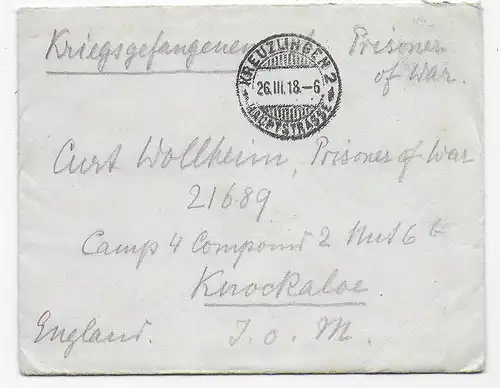 Kriegsgefangenen Prisoner
of War.
KREUZLINGEN 2
26.III.18.-6
HAUPTSTRASSE
Curt Wollheim, Prisoner of War
21689
Camp 4 Compound 2 Hut 6
Knockaloe
England. I. o. M.